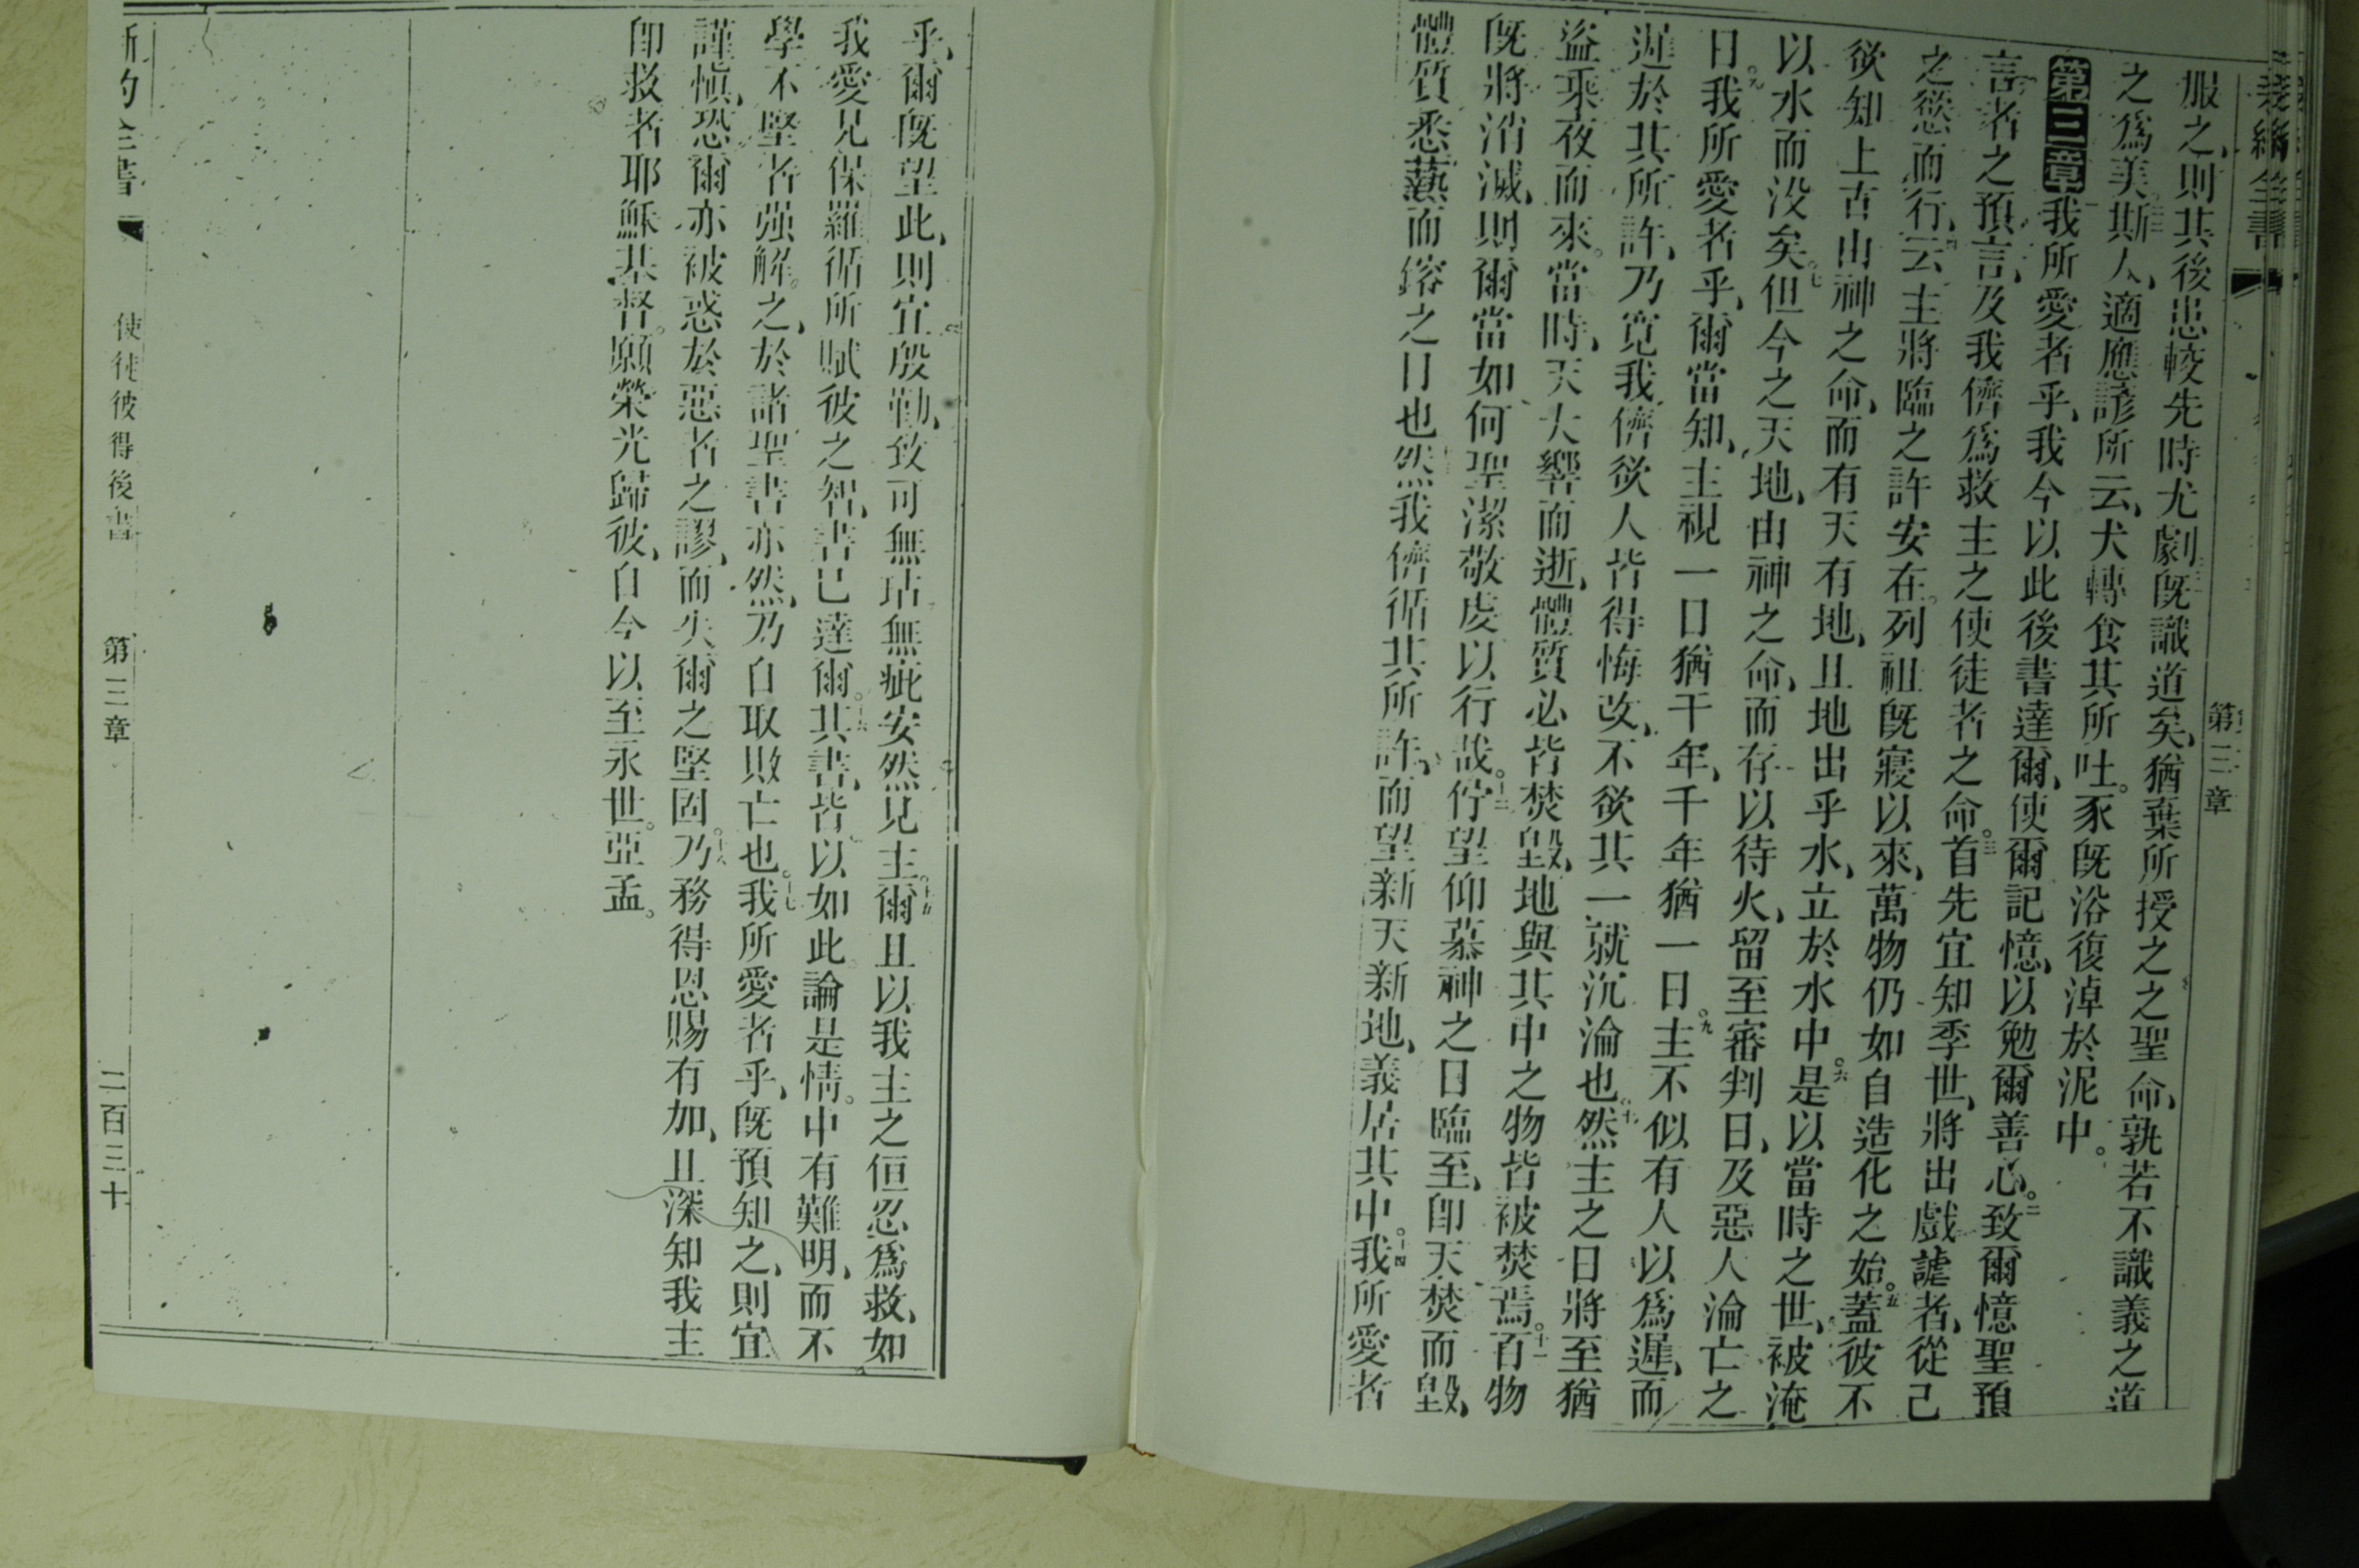 全書
第三章
服之、則其後患較先時尤劇、既識道矣、猶棄所授之之聖命、孰若不識義之道
之爲美、斯人、適應諺所云、犬轉食其所吐。豕既浴復淖於泥中。
第三章我所愛者乎、我今以此後書達爾、使爾記憶、以勉爾善心。二致爾憶聖預
言者之預言、及我儕爲救主之使徒者之命。三首先宜知季世、將出戲謔者、從己
之慾而行、四云主將臨之許安在。列祖既寢以來、萬物仍如自造化之始。五蓋彼不
欲知上古由神之命、而有天有地、且地出乎水、立於水中。六是以當時之世、被淹
以水而没矣。七但今之天地、由神之命、而存以待火、留至審判日、及惡人淪亡之
日。八我所愛者乎、爾當知、主視一日猶千年、千年猶一日。九主不似有人以爲遲、而
遲於其所許、乃寬我儕、欲人皆得悔改、不欲其一就沉淪也。十然主之日將至猶
盜乘夜而來。當時、天大響而逝、體質必皆焚毀、地與其中之物皆被焚焉。十一百物
既將消滅、則爾當如何聖潔敬虔以行哉。十二佇望仰慕神之日臨至、卽天焚而毀、
體質悉爇而鎔之日也。十三然我儕循其所許、而望新天新地、義居其中。十四我所愛者
乎、爾既望此、則宜殷勤、致可無玷無疵安然見主。十五爾且以我主之恒忍爲救、如
我愛兄保羅循所賦彼之智、書已達爾。十六其書、皆以如此論是情。中有難明、而不
學不堅者强解之、於諸聖書亦然、乃自取敗亡也。十七我所愛者乎、既預知之、則宜
謹愼、恐爾亦被惑於惡者之謬、而失爾之堅固。十八乃務得恩賜有加、且深知我主
卽救者耶穌基督。願榮光歸彼、自今以至永世。亞孟。
新約全書
使徒彼得後書
第三章
二百三十